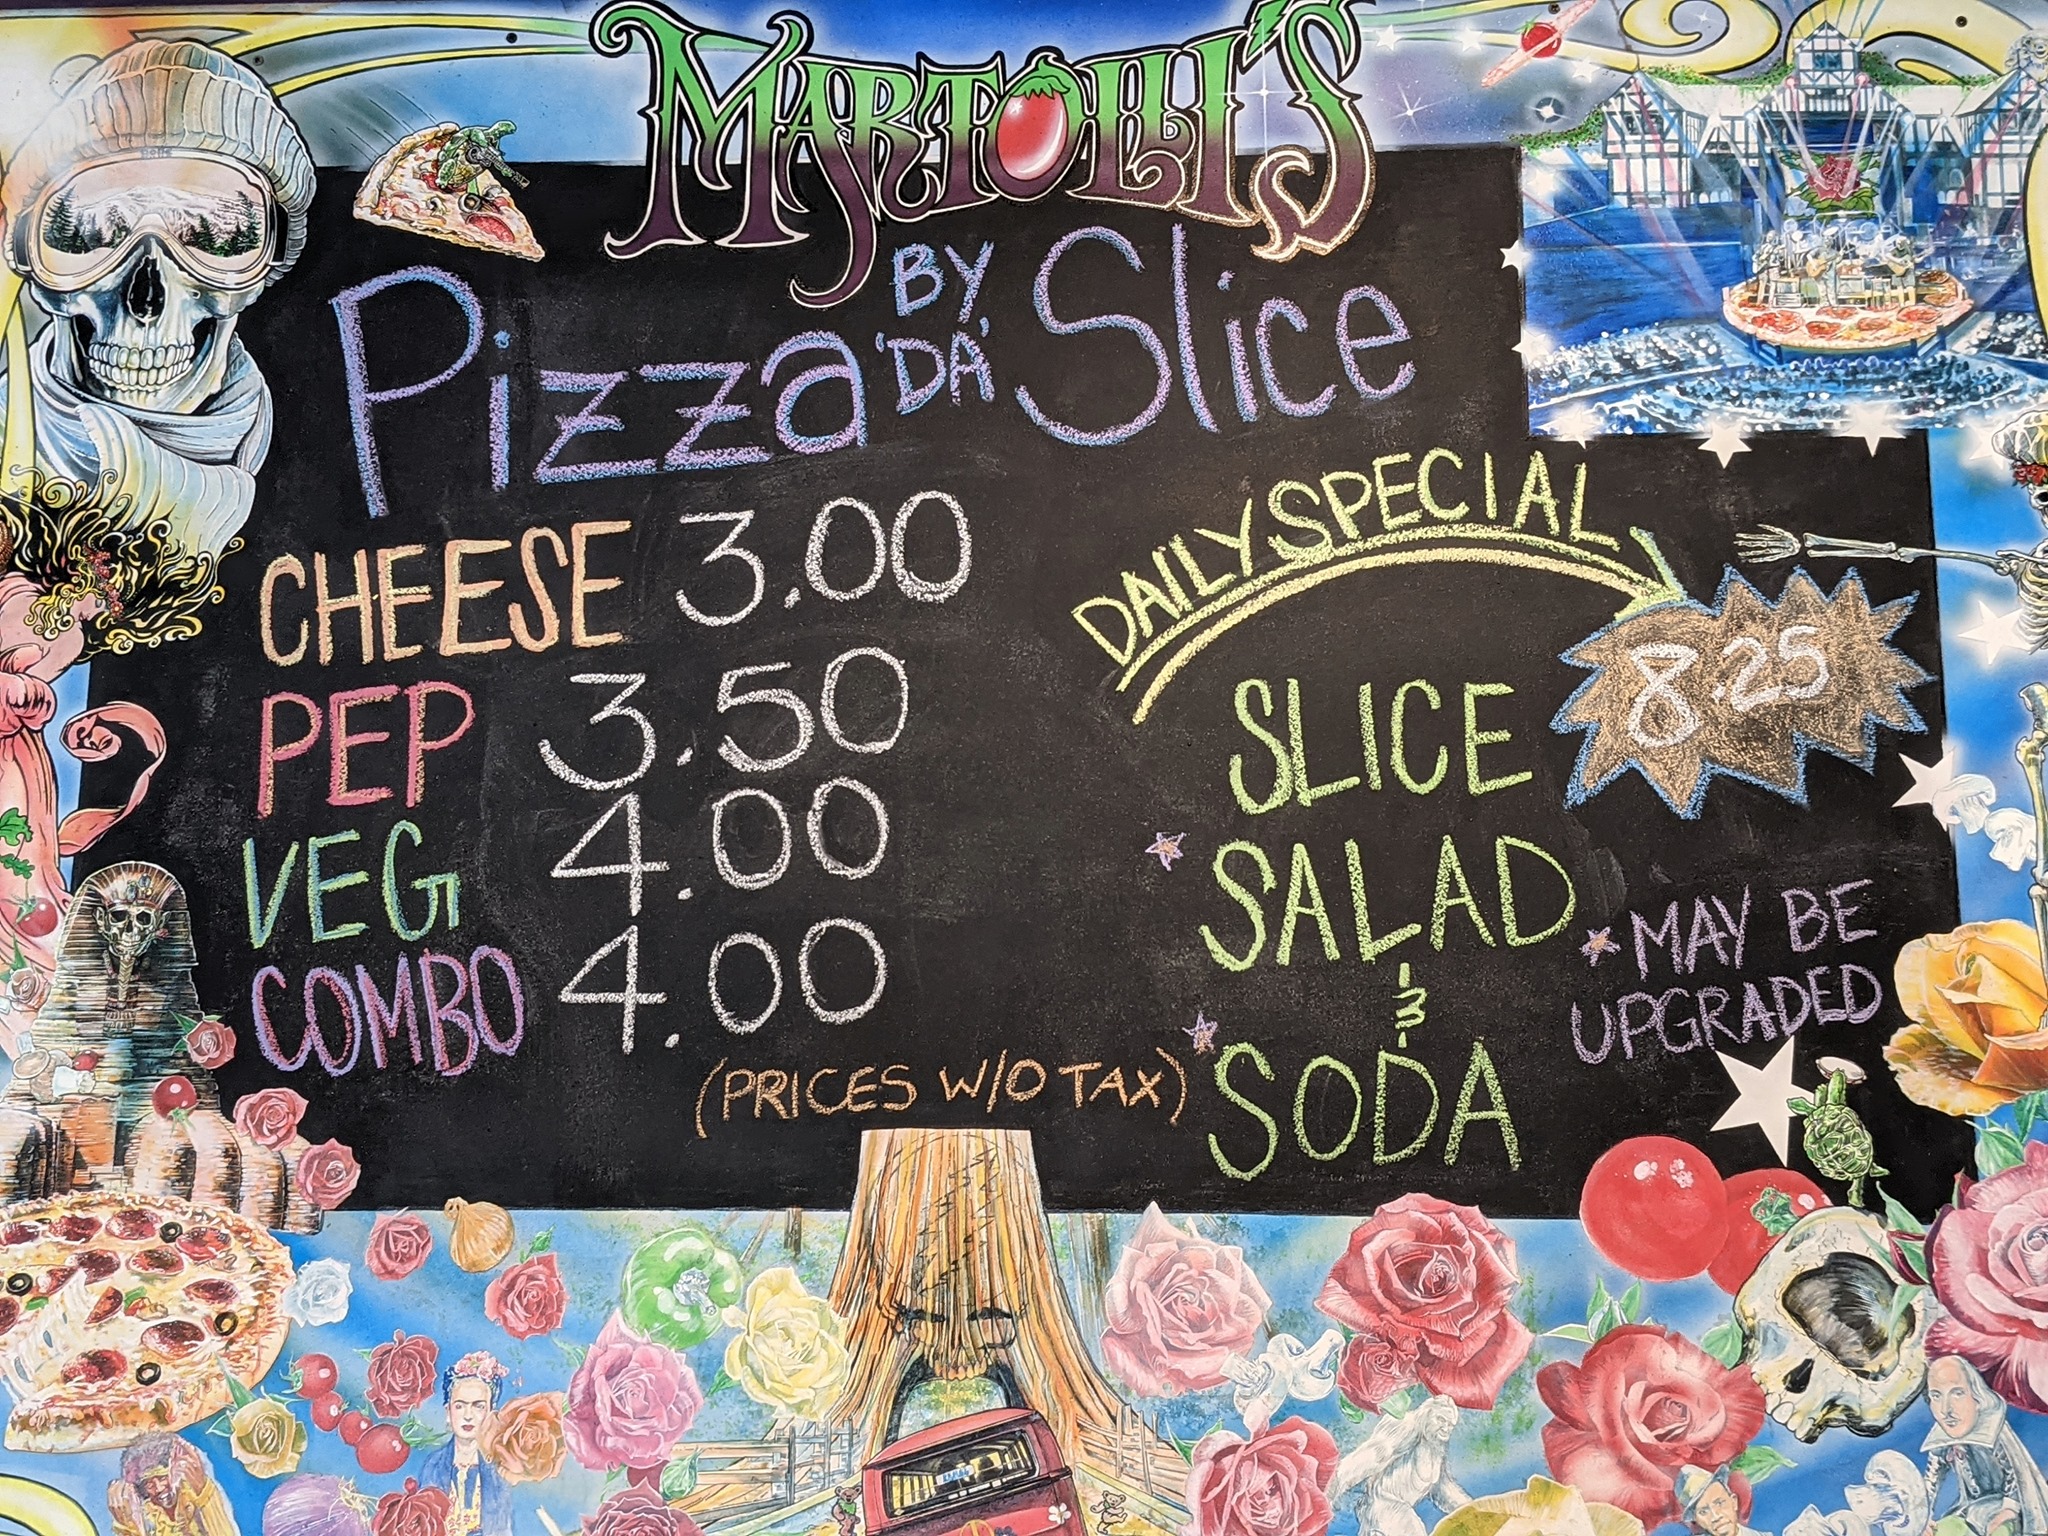 MARTOLLI'S
Pizza BY 'DA' Slice
CHEESE 3.00
PEP 3.50
VEG 4.00
COMBO 4.00
(PRICES W/O TAX)
DAILY SPECIAL
8.25
SLICE
SALAD
&
SODA
*MAY BE
UPGRADED